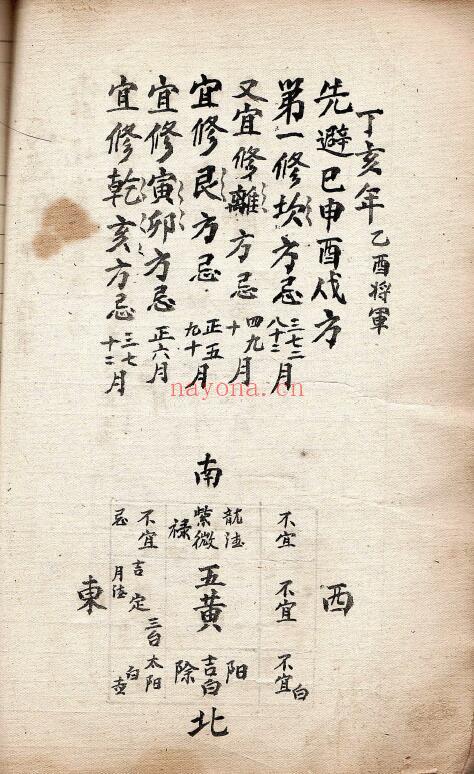 丁亥年 乙酉将軍
先避巳申酉伐方
第一修坎方忌三七二八十二月
又宜修離方忌四九十月
宜修艮方忌正五九十月
宜修寅卯方忌正六月
宜修乾亥方忌三七十二月
nayona.cn
南
不宜
紫微
禄
不宜
忌
西
不宜
五黄
吉
定
月
東
三台
不宜
白
陽
吉白
除
太阳
白
北